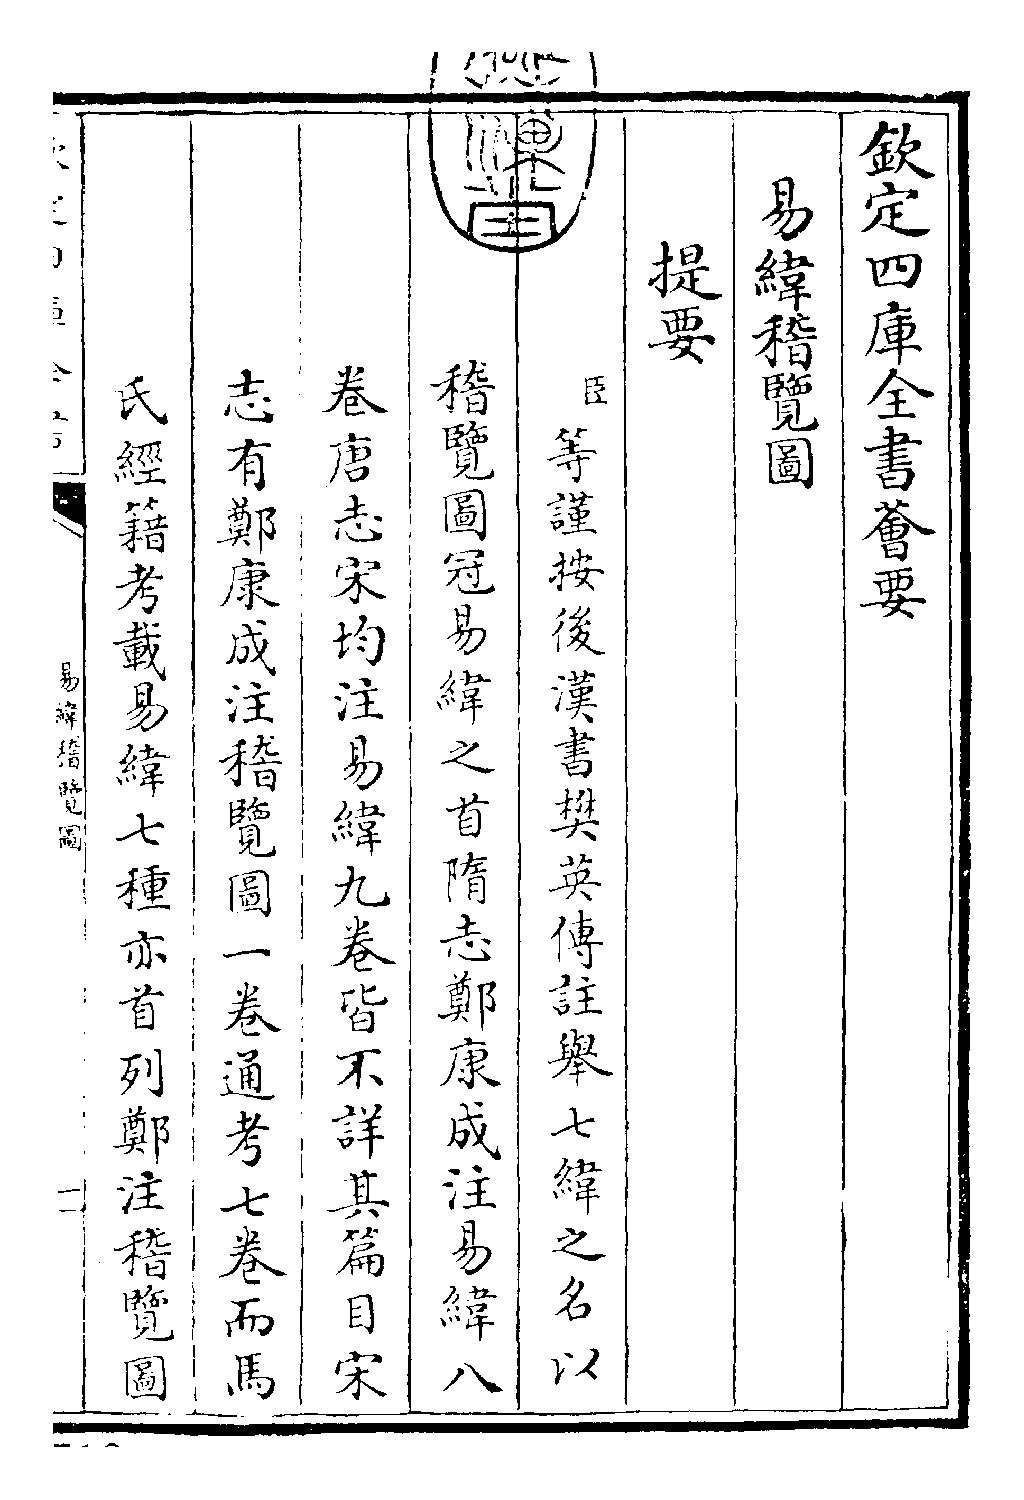 欽定四庫全書薈要
易緯稽覽圖
提要
臣等謹按後漢書樊英傳註舉七緯之名以
稽覽圖冠易緯之首隋志鄭康成注易緯八
卷唐志宋均注易緯九卷皆不詳其篇目宋
志有鄭康成注稽覽圖一卷通考七卷而馬
氏經籍考載易緯七種亦首列鄭注稽覽圖
易緯稽覽圖